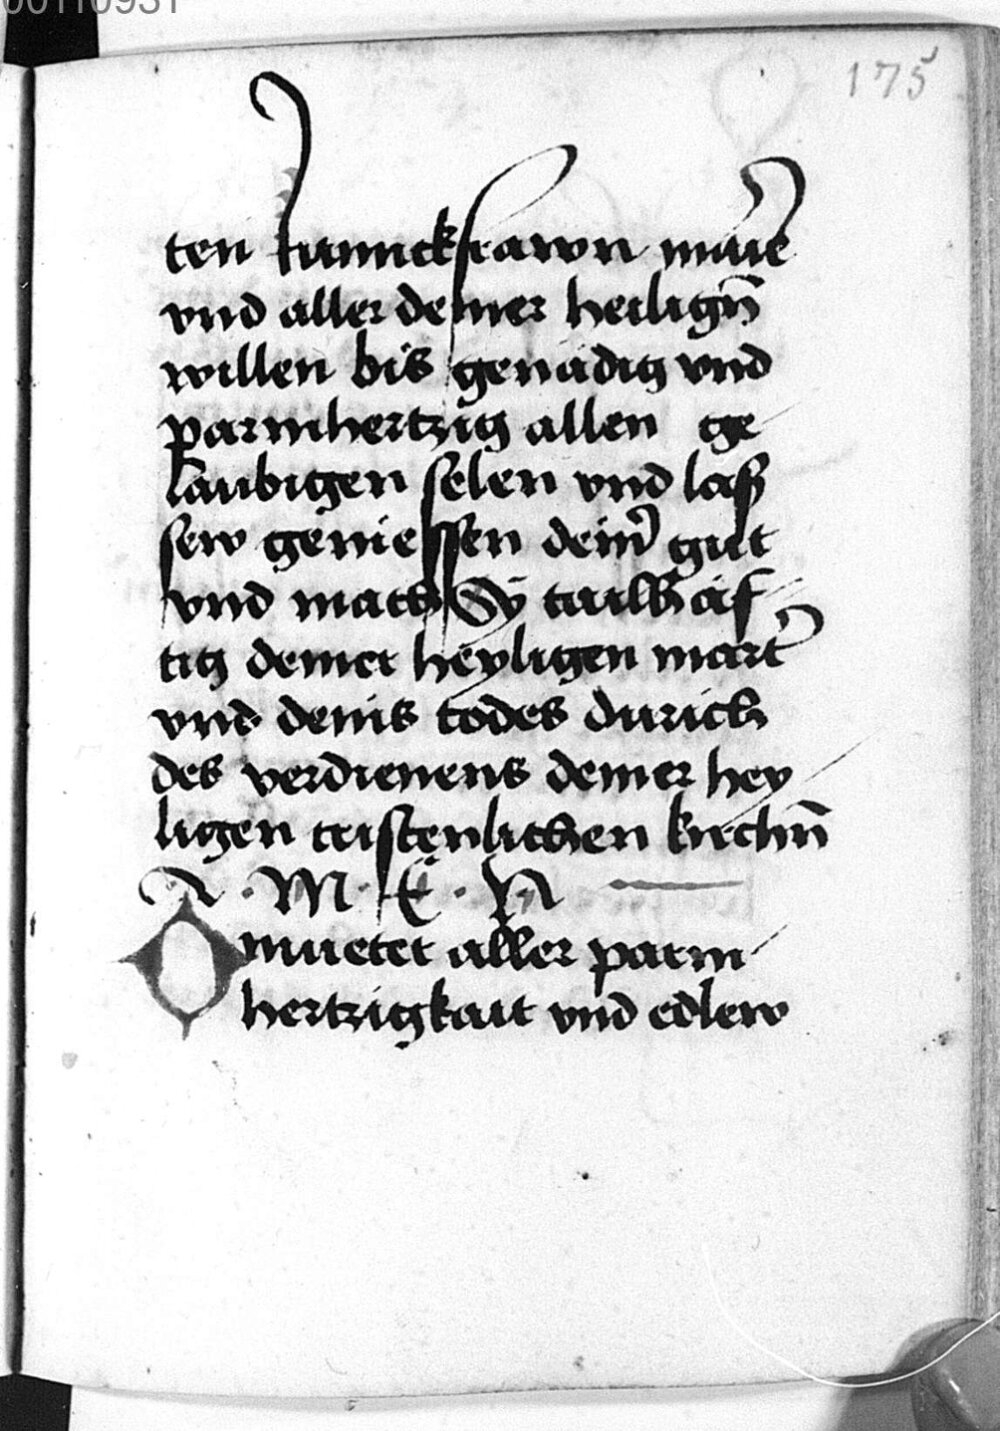 00110931
175
ten Junnckfrawn marie
vnd aller deiner heiligñ
willen bis genädig vnd
parmhertzig allen ge
laubigen selen vnd laß
sew geniessen deinr̄ güt
vnd mach Sÿ tailhäf
tig deiner heÿligen martr̄
vnd deins todes durich
des verdienens deiner hey
ligen cristenlichen kirchñ
A · M · E · N
O mueter aller parm
hertzigkait vnd edlew